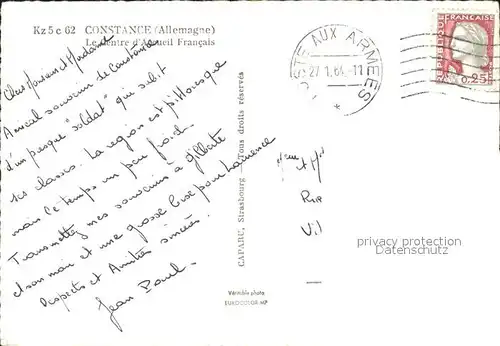 Kz5c 62 CONSTANCE (Allemagne)
Le Centre d'Accueil Français
Chers Monsieur et Madame
Amical souvenir de Constance
d'un presque "soldat" qui subit
les classes. La region est pittoresque
mais le temps un peu froid.
Transmettez mes souvenirs à Gilberte
et son mari et une grosse bise pour Laurence
Respects et Amitiés sincères.
Jean Paul.
CAPARC, Strasbourg — Tous droits réservés
Véritable photo
EUROCOLOR MP
POSTE AUX ARMEES
27.1.6 -11
FRANÇAISE
0,25
privacy protection
Datenschutz